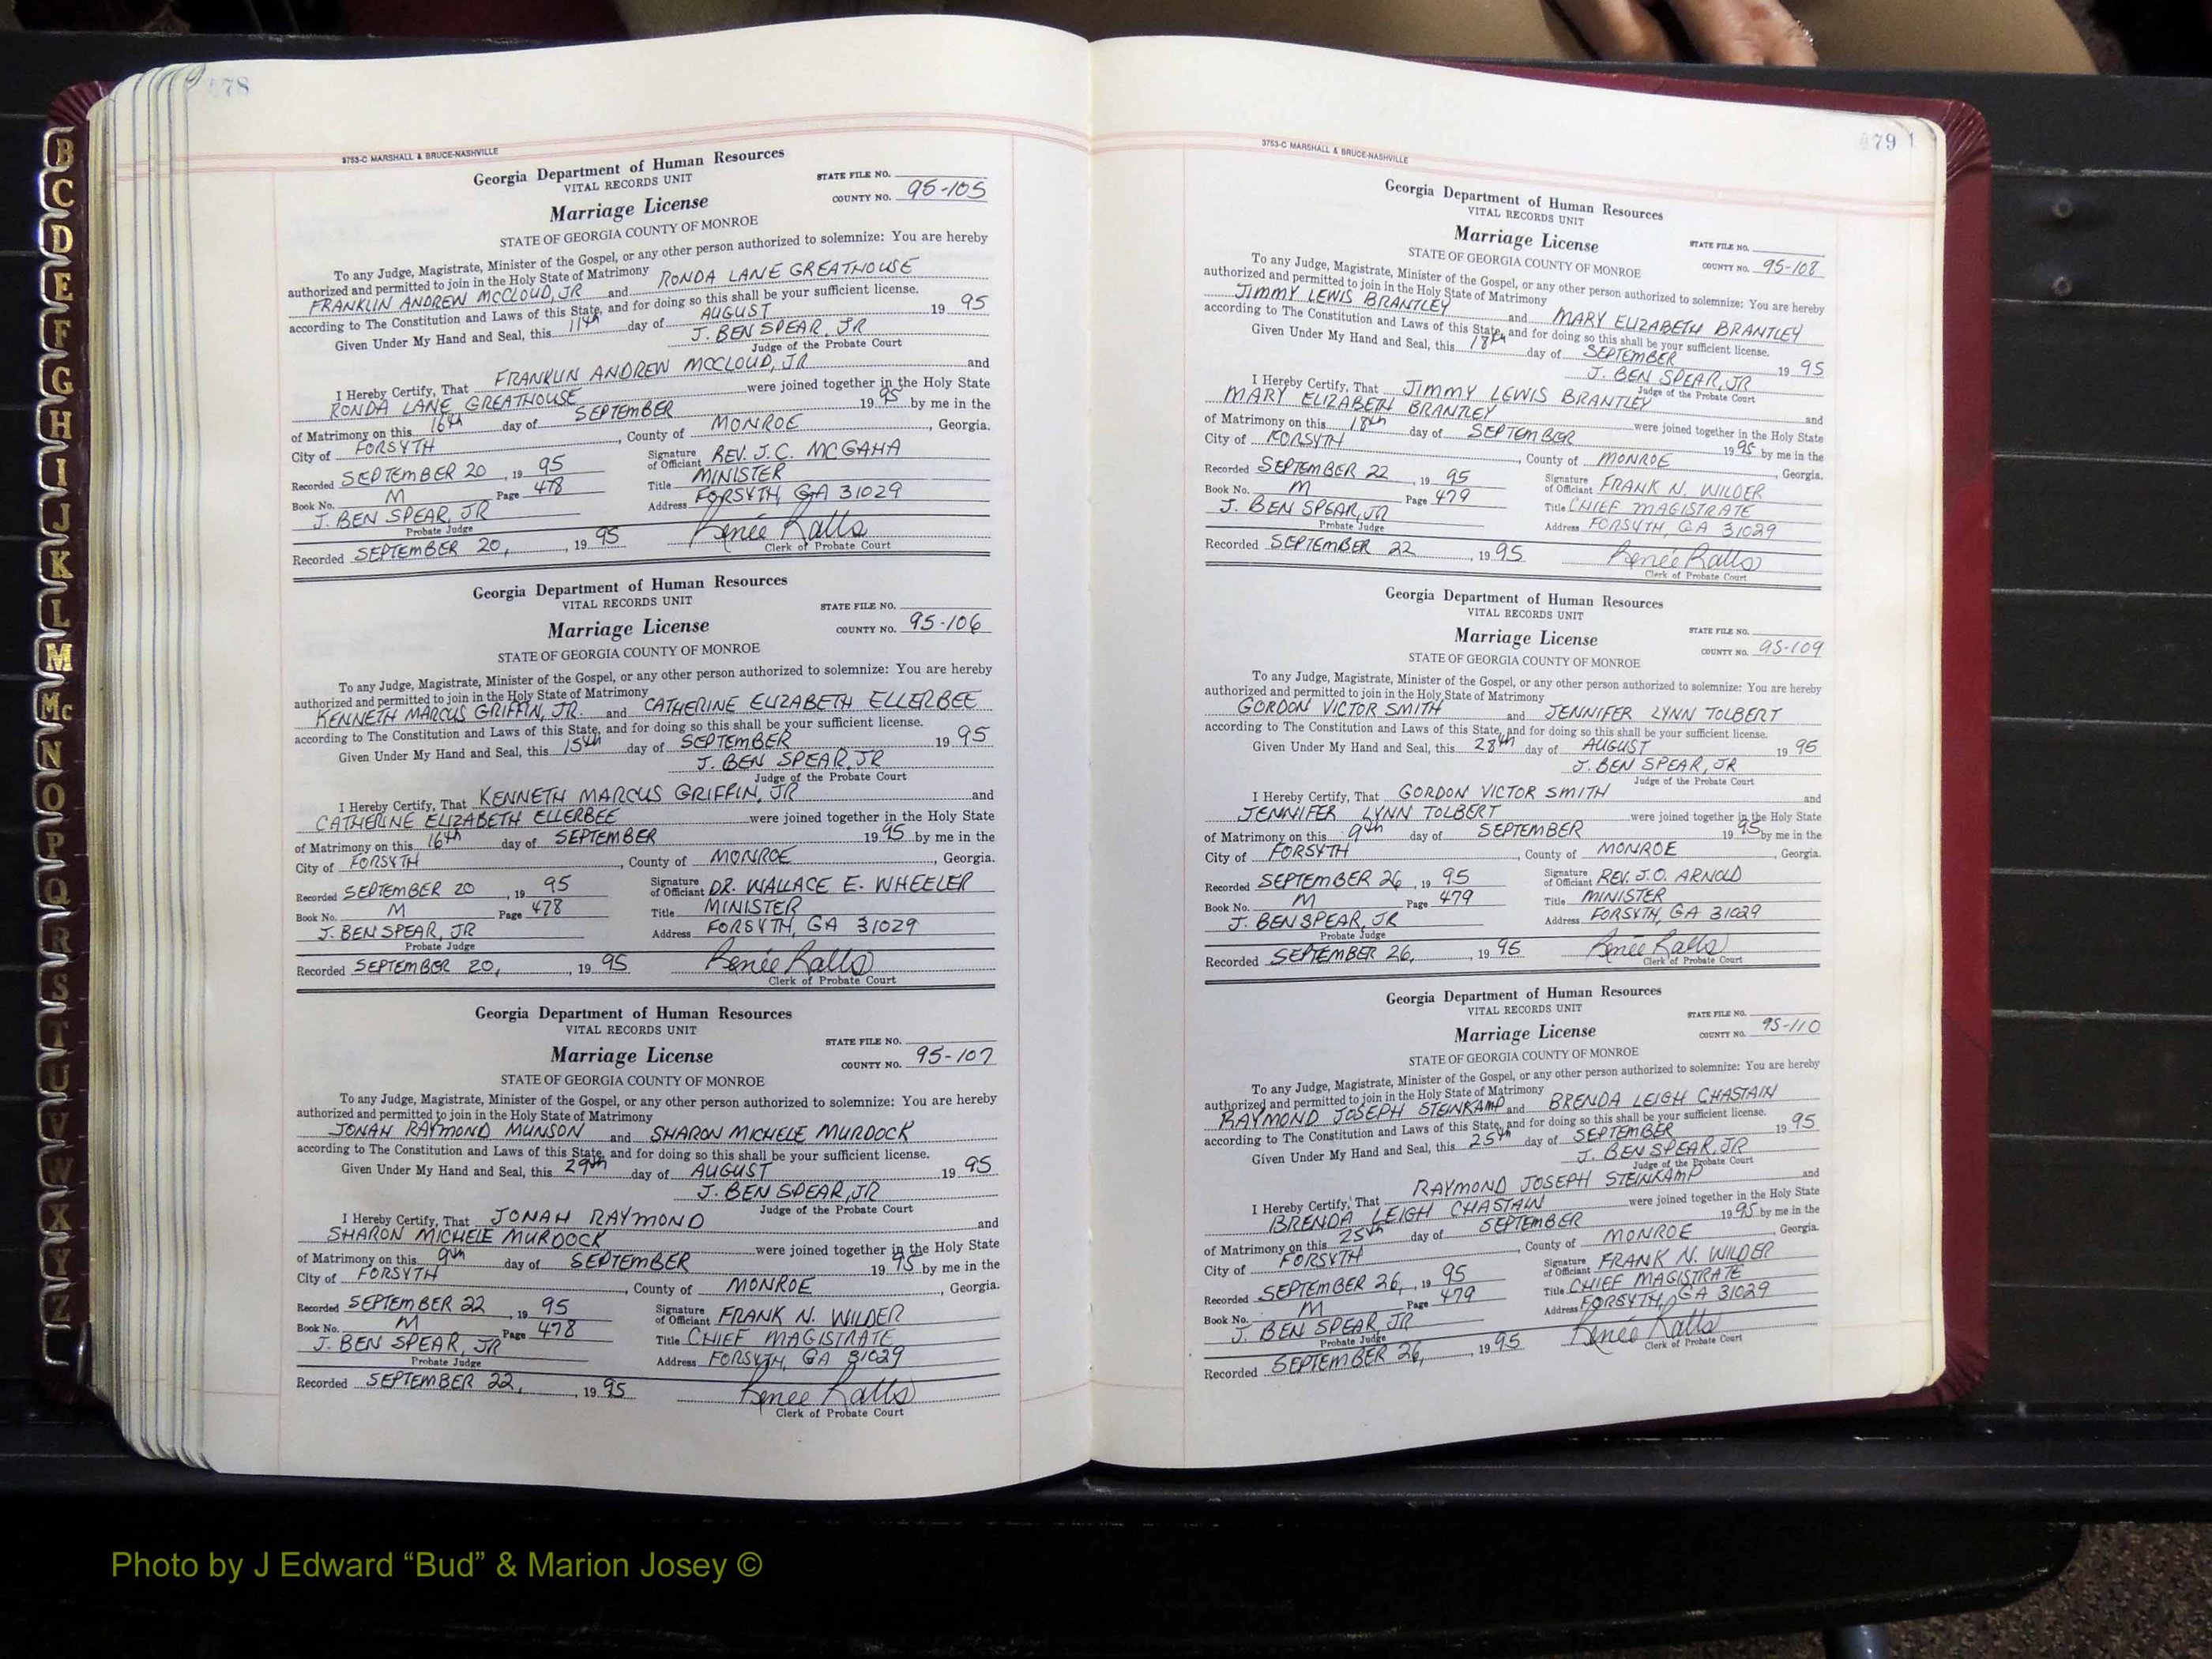 B
C
D
E
F
G
H
I
J
K
L
M
Mc
N
O
P
Q
R
S
T
U
V
W
X
Y
Z
478
3753-C MARSHALL & BRUCE-NASHVILLE
Georgia Department of Human Resources
VITAL RECORDS UNIT
STATE FILE NO.
Marriage License
COUNTY NO. 95-105
STATE OF GEORGIA COUNTY OF MONROE
To any Judge, Magistrate, Minister of the Gospel, or any other person authorized to solemnize: You are hereby
authorized and permitted to join in the Holy State of Matrimony
FRANKLIN ANDREW McCLOUD, JR and RONDA LANE GREATHOUSE
according to The Constitution and Laws of this State, and for doing so this shall be your sufficient license.
Given Under My Hand and Seal, this 11th day of AUGUST 19 95
J. BEN SPEAR, JR
Judge of the Probate Court
I Hereby Certify, That FRANKLIN ANDREW McCLOUD, JR and
RONDA LANE GREATHOUSE were joined together in the Holy State
of Matrimony on this 16th day of SEPTEMBER 19 95 by me in the
City of FORSYTH, County of MONROE, Georgia.
Recorded SEPTEMBER 20, 19 95 Signature of Officiant REV. J.C. MCGAHA
Book No. M Page 478 Title MINISTER
J. BEN SPEAR, JR Address FORSYTH, GA 31029
Probate Judge
Recorded SEPTEMBER 20, 19 95 Renée Ralls
Clerk of Probate Court
Georgia Department of Human Resources
VITAL RECORDS UNIT
STATE FILE NO.
Marriage License
COUNTY NO. 95-106
STATE OF GEORGIA COUNTY OF MONROE
To any Judge, Magistrate, Minister of the Gospel, or any other person authorized to solemnize: You are hereby
authorized and permitted to join in the Holy State of Matrimony
KENNETH MARCUS GRIFFIN, JR. and CATHERINE ELIZABETH ELLERBEE
according to The Constitution and Laws of this State, and for doing so this shall be your sufficient license.
Given Under My Hand and Seal, this 15th day of SEPTEMBER 19 95
J. BEN SPEAR, JR
Judge of the Probate Court
I Hereby Certify, That KENNETH MARCUS GRIFFIN, JR and
CATHERINE ELIZABETH ELLERBEE were joined together in the Holy State
of Matrimony on this 16th day of SEPTEMBER 19 95 by me in the
City of FORSYTH, County of MONROE, Georgia.
Recorded SEPTEMBER 20, 19 95 Signature of Officiant DR. WALLACE E. WHEELER
Book No. M Page 478 Title MINISTER
J. BEN SPEAR, JR Address FORSYTH, GA 31029
Probate Judge
Recorded SEPTEMBER 20, 19 95 Renée Ralls
Clerk of Probate Court
Georgia Department of Human Resources
VITAL RECORDS UNIT
STATE FILE NO.
Marriage License
COUNTY NO. 95-107
STATE OF GEORGIA COUNTY OF MONROE
To any Judge, Magistrate, Minister of the Gospel, or any other person authorized to solemnize: You are hereby
authorized and permitted to join in the Holy State of Matrimony
JONAH RAYMOND MUNSON and SHARON MICHELE MURDOCK
according to The Constitution and Laws of this State, and for doing so this shall be your sufficient license.
Given Under My Hand and Seal, this 29th day of AUGUST 19 95
J. BEN SPEAR, JR
Judge of the Probate Court
I Hereby Certify, That JONAH RAYMOND and
SHARON MICHELE MURDOCK were joined together in the Holy State
of Matrimony on this 9th day of SEPTEMBER 19 95 by me in the
City of FORSYTH, County of MONROE, Georgia.
Recorded SEPTEMBER 22, 19 95 Signature of Officiant FRANK N. WILDER
Book No. M Page 478 Title CHIEF MAGISTRATE
J. BEN SPEAR, JR Address FORSYTH, GA 31029
Probate Judge
Recorded SEPTEMBER 22, 19 95 Renée Ralls
Clerk of Probate Court
479
3753-C MARSHALL & BRUCE-NASHVILLE
Georgia Department of Human Resources
VITAL RECORDS UNIT
STATE FILE NO.
Marriage License
COUNTY NO. 95-108
STATE OF GEORGIA COUNTY OF MONROE
To any Judge, Magistrate, Minister of the Gospel, or any other person authorized to solemnize: You are hereby
authorized and permitted to join in the Holy State of Matrimony
JIMMY LEWIS BRANTLEY and MARY ELIZABETH BRANTLEY
according to The Constitution and Laws of this State, and for doing so this shall be your sufficient license.
Given Under My Hand and Seal, this 18th day of SEPTEMBER 19 95
J. BEN SPEAR, JR
Judge of the Probate Court
I Hereby Certify, That JIMMY LEWIS BRANTLEY and
MARY ELIZABETH BRANTLEY were joined together in the Holy State
of Matrimony on this 18th day of SEPTEMBER 19 95 by me in the
City of FORSYTH, County of MONROE, Georgia.
Recorded SEPTEMBER 22, 19 95 Signature of Officiant FRANK N. WILDER
Book No. M Page 479 Title CHIEF MAGISTRATE
J. BEN SPEAR, JR Address FORSYTH, GA 31029
Probate Judge
Recorded SEPTEMBER 22, 19 95 Renée Ralls
Clerk of Probate Court
Georgia Department of Human Resources
VITAL RECORDS UNIT
STATE FILE NO.
Marriage License
COUNTY NO. 95-109
STATE OF GEORGIA COUNTY OF MONROE
To any Judge, Magistrate, Minister of the Gospel, or any other person authorized to solemnize: You are hereby
authorized and permitted to join in the Holy State of Matrimony
GORDON VICTOR SMITH and JENNIFER LYNN TOLBERT
according to The Constitution and Laws of this State, and for doing so this shall be your sufficient license.
Given Under My Hand and Seal, this 28th day of AUGUST 19 95
J. BEN SPEAR, JR
Judge of the Probate Court
I Hereby Certify, That GORDON VICTOR SMITH and
JENNIFER LYNN TOLBERT were joined together in the Holy State
of Matrimony on this 9th day of SEPTEMBER 19 95 by me in the
City of FORSYTH, County of MONROE, Georgia.
Recorded SEPTEMBER 26, 19 95 Signature of Officiant REV. J.O. ARNOLD
Book No. M Page 479 Title MINISTER
J. BEN SPEAR, JR Address FORSYTH, GA 31029
Probate Judge
Recorded SEPTEMBER 26, 19 95 Renée Ralls
Clerk of Probate Court
Georgia Department of Human Resources
VITAL RECORDS UNIT
STATE FILE NO.
Marriage License
COUNTY NO. 95-110
STATE OF GEORGIA COUNTY OF MONROE
To any Judge, Magistrate, Minister of the Gospel, or any other person authorized to solemnize: You are hereby
authorized and permitted to join in the Holy State of Matrimony
RAYMOND JOSEPH STEINKAMP and BRENDA LEIGH CHASTAIN
according to The Constitution and Laws of this State, and for doing so this shall be your sufficient license.
Given Under My Hand and Seal, this 25th day of SEPTEMBER 19 95
J. BEN SPEAR, JR
Judge of the Probate Court
I Hereby Certify, That RAYMOND JOSEPH STEINKAMP and
BRENDA LEIGH CHASTAIN were joined together in the Holy State
of Matrimony on this 25th day of SEPTEMBER 19 95 by me in the
City of FORSYTH, County of MONROE, Georgia.
Recorded SEPTEMBER 26, 19 95 Signature of Officiant FRANK N. WILDER
Book No. M Page 479 Title CHIEF MAGISTRATE
J. BEN SPEAR JR Address FORSYTH, GA 31029
Probate Judge
Recorded SEPTEMBER 26, 19 95 Renée Ralls
Clerk of Probate Court
Photo by J Edward “Bud” & Marion Josey ©